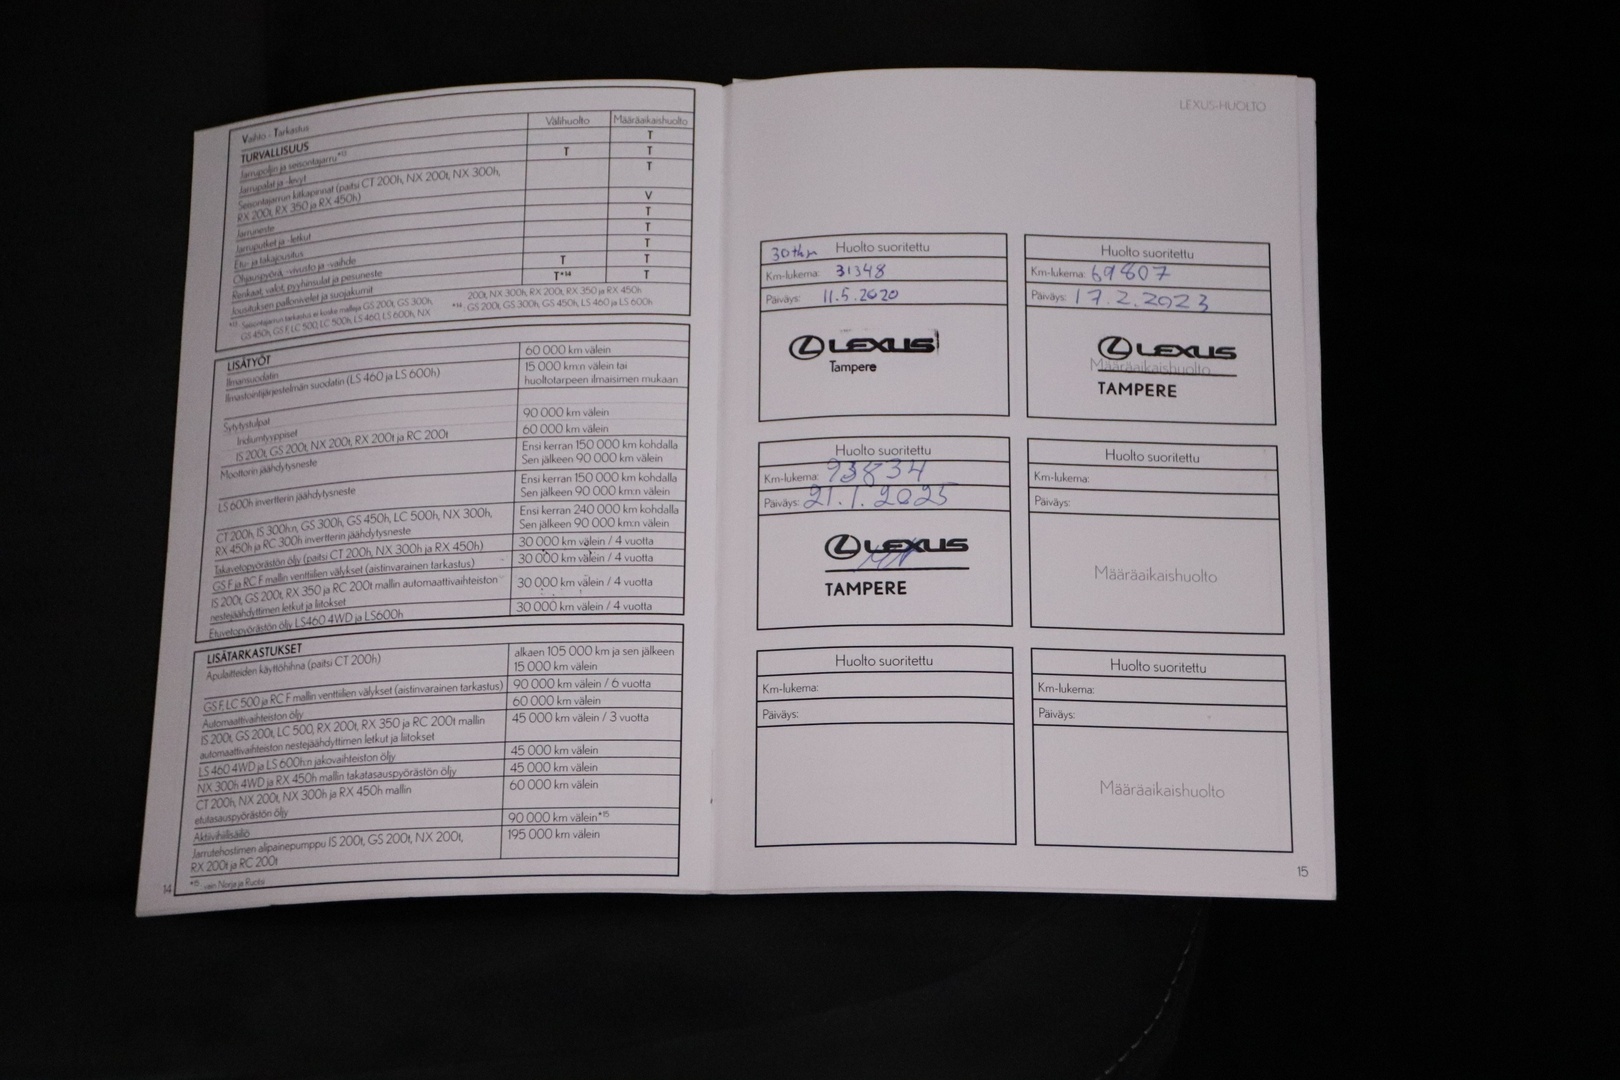 Vaihto - Tarkastus Välihuolto Määräaikaishuolto
TURVALLISUUS T
Jarrupoljin ja seisontajarru*13 T T
Jarrupalat ja -levyt T
Seisontajarrun kitkapinnat (paitsi CT 200h, NX 200t, NX 300h,
RX 200t, RX 350 ja RX 450h) V
Jarruneste T
Jarruputket ja -letkut T
Etu- ja takajousitus T
Ohjauspyörä, -vivusto ja -vaihde T T
Renkaat, valot, pyyhinsulat ja pesuneste T*14 T
Jousituksen pallonivelet ja suojakumit
*13 Seisontajarrun tarkastus ei koske malleja GS 200t, GS 300h,
GS 450h, GS F, LC 500, LC 500h, LS 460, LS 600h, NX
200t, NX 300h, RX 200t, RX 350 ja RX 450h
*14 GS 200t, GS 300h, GS 450h, LS 460 ja LS 600h
LISÄTYÖT
Ilmansuodatin 60 000 km välein
Ilmastointijärjestelmän suodatin (LS 460 ja LS 600h) 15 000 km:n välein tai
huoltotarpeen ilmaisimen mukaan
Sytytystulpat
Iridiumtyyppiset 90 000 km välein
IS 200t, GS 200t, NX 200t, RX 200t ja RC 200t 60 000 km välein
Moottorin jäähdytysneste Ensi kerran 150 000 km kohdalla
Sen jälkeen 90 000 km välein
LS 600h invertterin jäähdytysneste Ensi kerran 150 000 km kohdalla
Sen jälkeen 90 000 km:n välein
CT 200h, IS 300h:n, GS 300h, GS 450h, LC 500h, NX 300h, Ensi kerran 240 000 km kohdalla
RX 450h ja RC 300h invertterin jäähdytysneste Sen jälkeen 90 000 km:n välein
Takavetopyörästön öljy (paitsi CT 200h, NX 300h ja RX 450h) 30 000 km välein / 4 vuotta
GS F ja RC F mallin venttiilien välykset (aistinvarainen tarkastus) 30 000 km välein / 4 vuotta
IS 200t, GS 200t, RX 350 ja RC 200t mallin automaattivaihteiston 30 000 km välein / 4 vuotta
nestejäähdyttimen letkut ja liitokset
Etuvetopyörästön öljy LS460 4WD ja LS600h 30 000 km välein / 4 vuotta
LISÄTARKASTUKSET
Apulaitteiden käyttöhihna (paitsi CT 200h) alkaen 105 000 km ja sen jälkeen
15 000 km välein
GS F, LC 500 ja RC F mallin venttiilien välykset (aistinvarainen tarkastus) 90 000 km välein / 6 vuotta
Automaattivaihteiston öljy 60 000 km välein
IS 200t, GS 200t, LC 500, RX 200t, RX 350 ja RC 200t mallin 45 000 km välein / 3 vuotta
automaattivaihteiston nestejäähdyttimen letkut ja liitokset
LS 460 4WD ja LS 600h:n jakovaihteiston öljy 45 000 km välein
NX 300h 4WD ja RX 450h mallin takatasauspyörästön öljy 45 000 km välein
CT 200h, NX 200t, NX 300h ja RX 450h mallin 60 000 km välein
etutasauspyörästön öljy
Aktiivihiilisäiliö 90 000 km välein*15
Jarrutehostimen alipainepumppu IS 200t, GS 200t, NX 200t, 195 000 km välein
RX 200t ja RC 200t
*15 vain Norja ja Ruotsi
14
LEXUS-HUOLTO
30tkm Huolto suoritettu
Km-lukema: 31348
Päiväys: 11.5.2020
LEXUS
Tampere
Huolto suoritettu
Km-lukema: 69807
Päiväys: 17.2.2023
LEXUS
Määräaikaishuolto
TAMPERE
Huolto suoritettu
Km-lukema: 93834
Päiväys: 21.1.2025
LEXUS
TAMPERE
Huolto suoritettu
Km-lukema:
Päiväys:
Määräaikaishuolto
Huolto suoritettu
Km-lukema:
Päiväys:
Huolto suoritettu
Km-lukema:
Päiväys:
Määräaikaishuolto
15